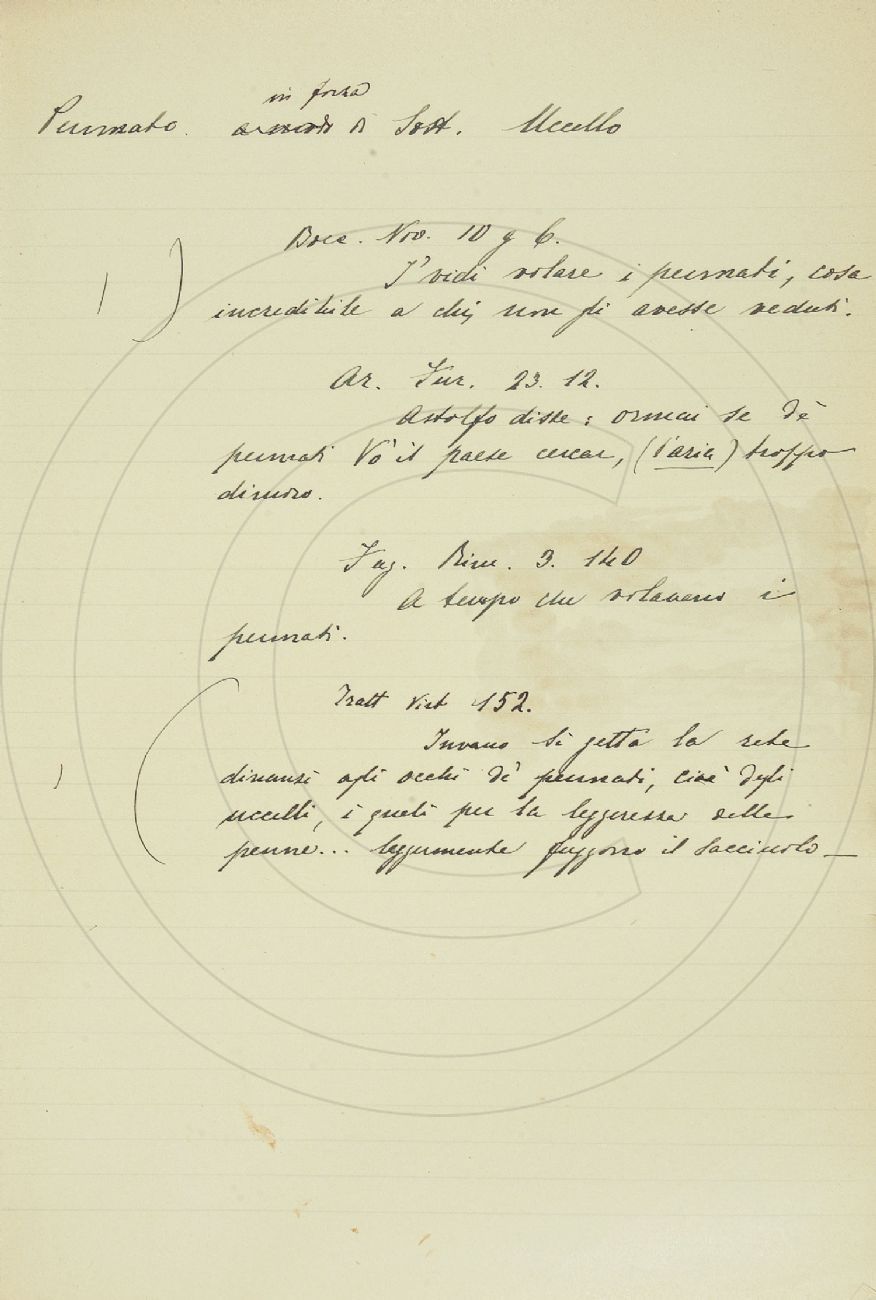 in forza
Pennato. a modo di Sost. Uccello
Bocc. Nov. 10 g 6.
I' vidi volare i pennati, cosa
incredibile a chi non gli avesse veduti.
Ar. Fur. 23. 12.
Astolfo disse: ormai se dè
pennati Vò il paese cercar, (l'aria) troppo
dimoro.
Fag. Rim. 3. 140
A tempo che volavano i
pennati.
Tratt Virt 152.
Invano si getta la rete
dinanzi agli occhi dè pennati, cioè degli
uccelli, i quali per la leggerezza delle
penne... leggermente fuggono il lacciuolo —